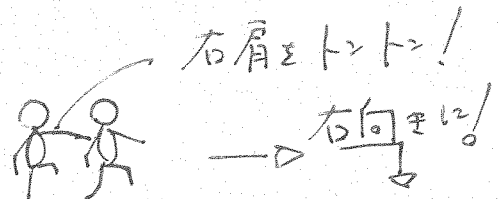 右肩をトントン!
右向きに!